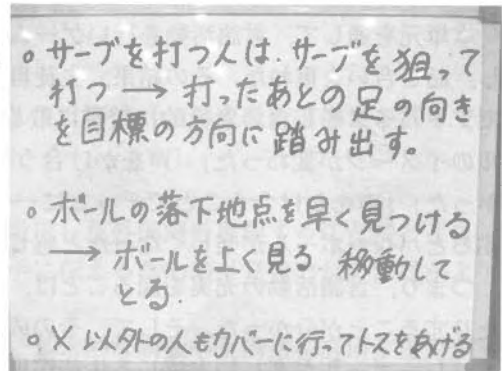 ○サーブを打つ人は、サーブを狙って
打つ → 打ったあとの足の向き
を目標の方向に踏み出す。
○ボールの落下地点を早く見つける
→ ボールを上く見る 移動して
とる.
○ X以外の人もカバーに行ってトスをあげる